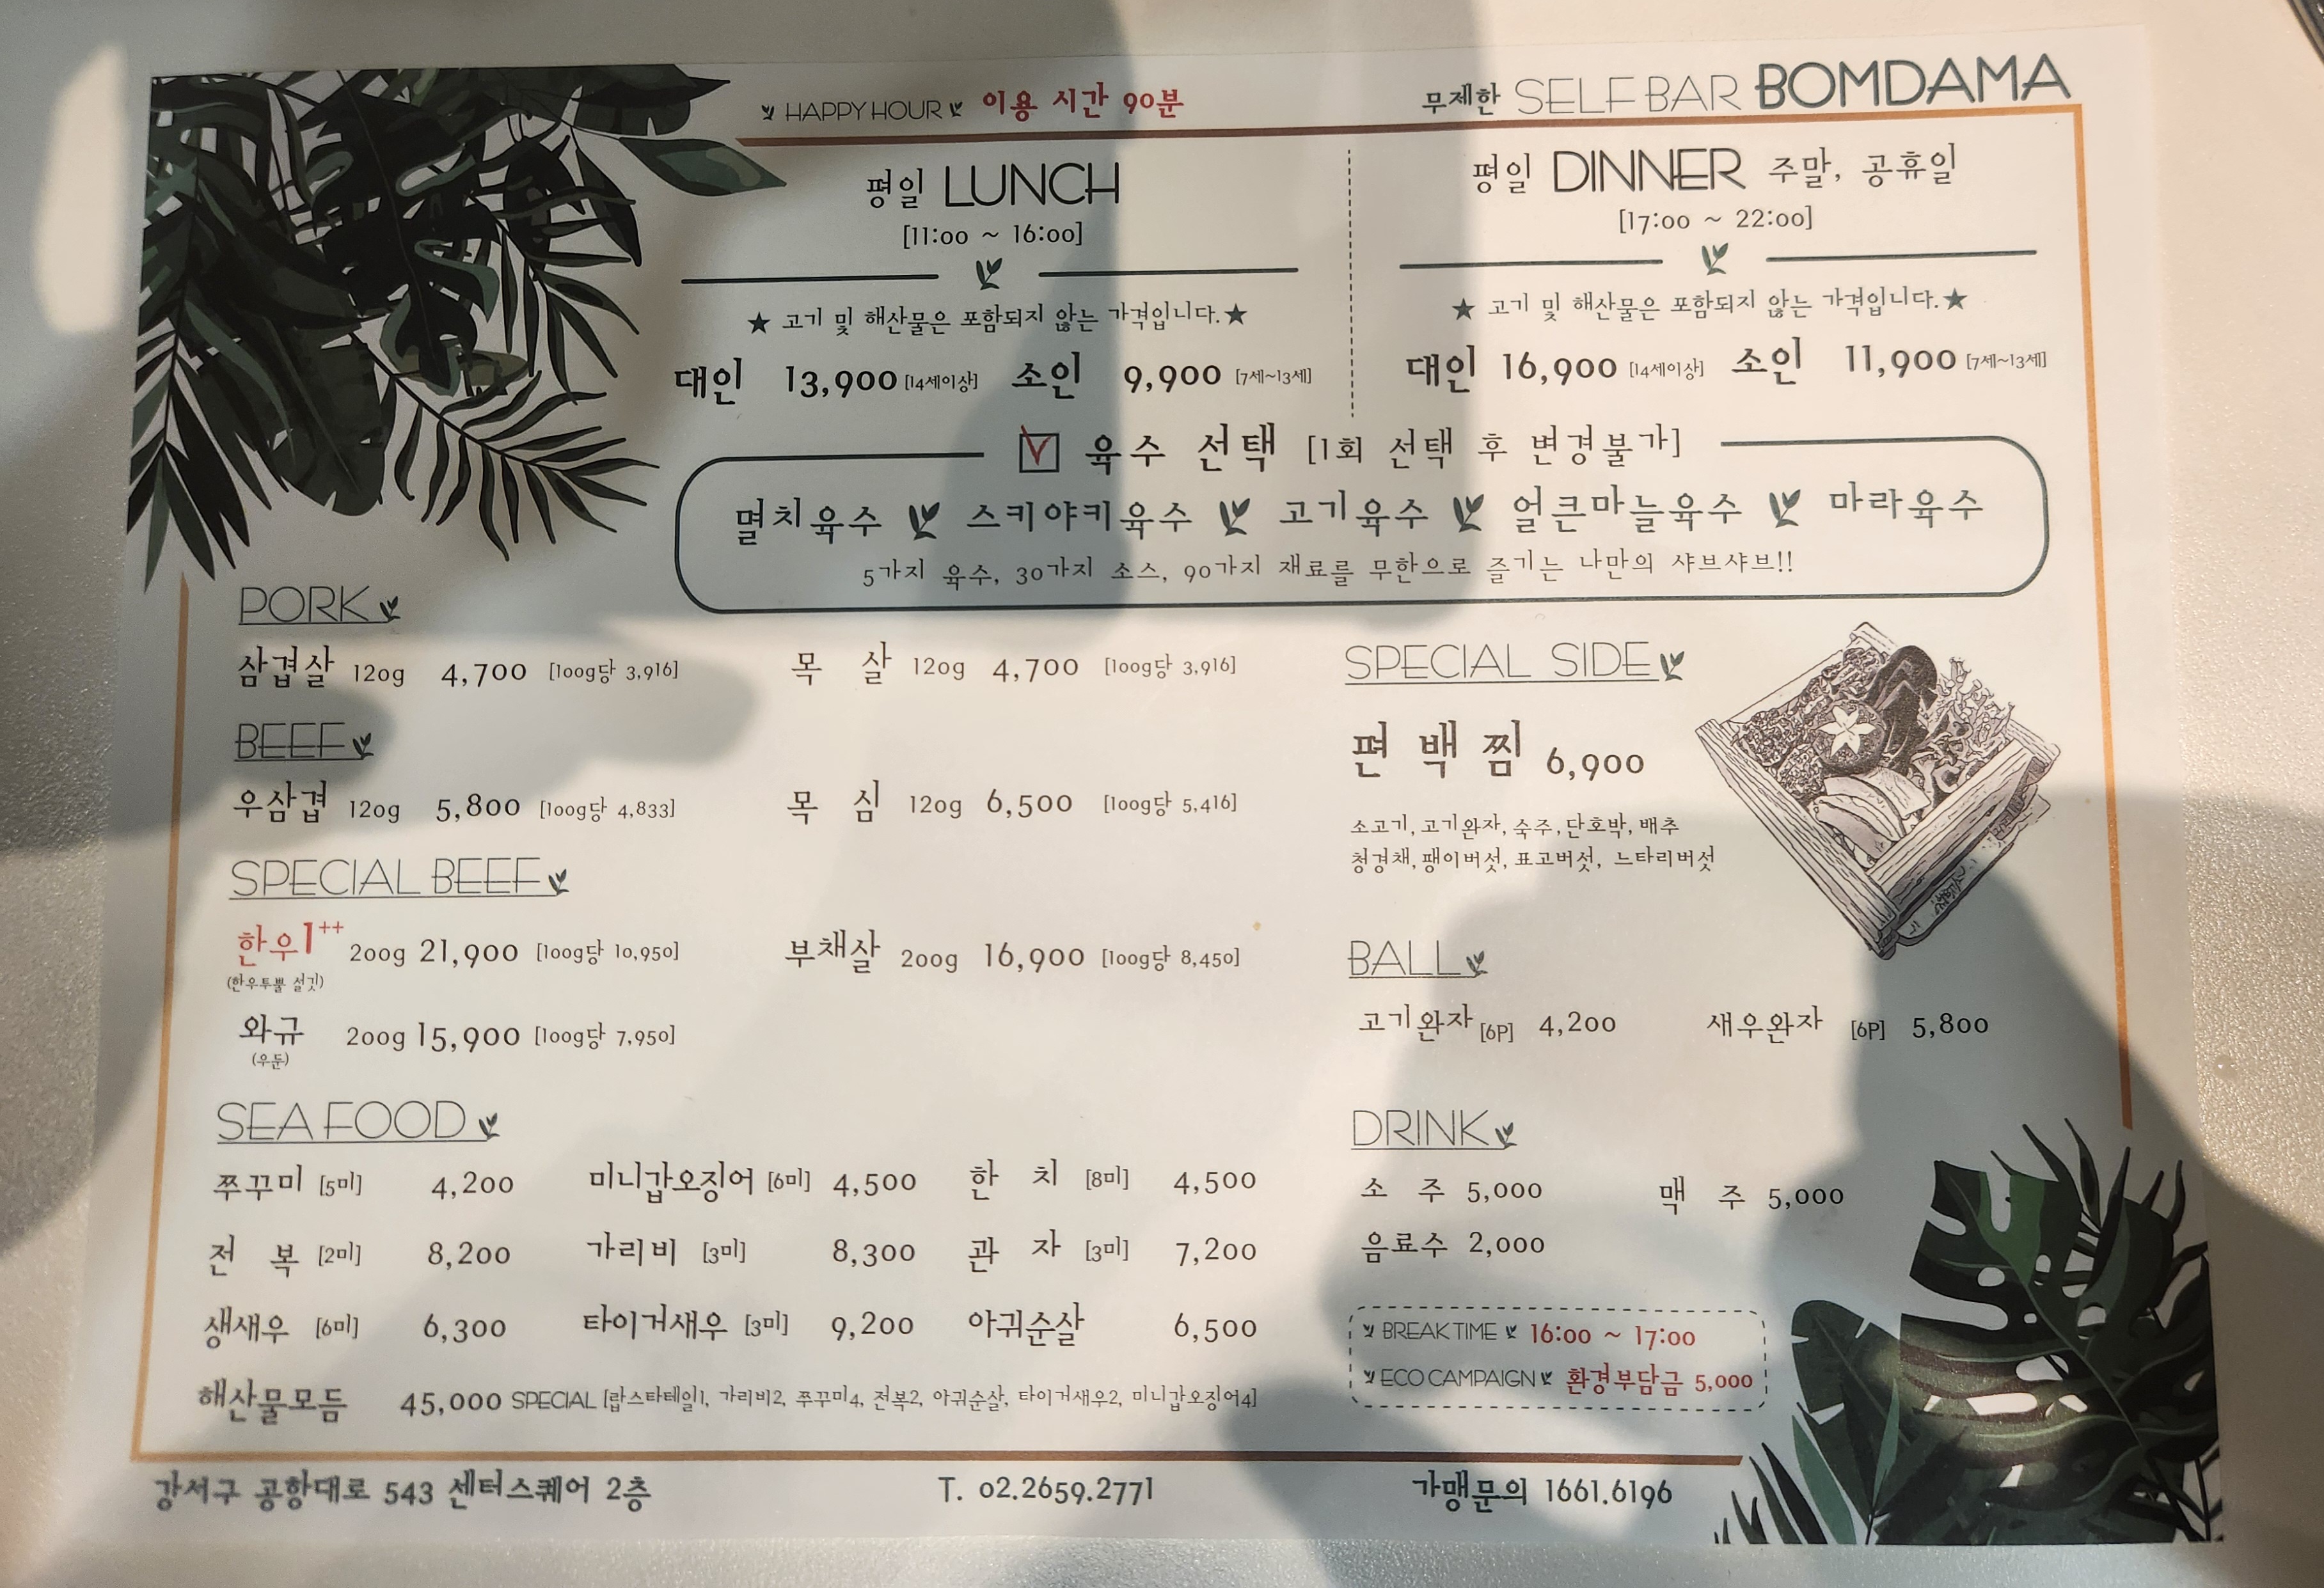 HAPPY HOUR 이용 시간 90분
무제한 SELF BAR BOMDAMA
평일 LUNCH
[11:00 ~ 16:00]
★ 고기 및 해산물은 포함되지 않는 가격입니다.★
대인 13,900 [14세이상] 소인 9,900 [7세~13세]
평일 DINNER 주말, 공휴일
[17:00 ~ 22:00]
★ 고기 및 해산물은 포함되지 않는 가격입니다.★
대인 16,900 [14세이상] 소인 11,900 [7세~13세]
육수 선택 [1회 선택 후 변경불가]
멸치육수 스키야키육수 고기육수 얼큰마늘육수 마라육수
5가지 육수, 30가지 소스, 90가지 재료를 무한으로 즐기는 나만의 샤브샤브!!
PORK
삼겹살 120g 4,700 [100g당 3,916] 목 살 120g 4,700 [100g당 3,916]
BEEF
우삼겹 120g 5,800 [100g당 4,833] 목 심 120g 6,500 [100g당 5,416]
SPECIAL BEEF
한우1++ 200g 21,900 [100g당 10,950] 부채살 200g 16,900 [100g당 8,450]
(한우투뿔 설깃)
와규 200g 15,900 [100g당 7,950]
(우둔)
SEA FOOD
쭈꾸미 [5미] 4,200 미니갑오징어 [6미] 4,500 한 치 [8미] 4,500
전 복 [2미] 8,200 가리비 [3미] 8,300 관 자 [3미] 7,200
생새우 [6미] 6,300 타이거새우 [3미] 9,200 아귀순살 6,500
해산물모듬 45,000 SPECIAL [랍스타테일1, 가리비2, 쭈꾸미4, 전복2, 아귀순살, 타이거새우2, 미니갑오징어4]
SPECIAL SIDE
편백찜 6,900
소고기, 고기완자, 숙주, 단호박, 배추
청경채, 팽이버섯, 표고버섯, 느타리버섯
BALL
고기완자 [6P] 4,200 새우완자 [6P] 5,800
DRINK
소 주 5,000 맥 주 5,000
음료수 2,000
BREAK TIME 16:00 ~ 17:00
ECO CAMPAIGN 환경부담금 5,000
강서구 공항대로 543 센터스퀘어 2층 T. 02.2659.2771 가맹문의 1661.6196